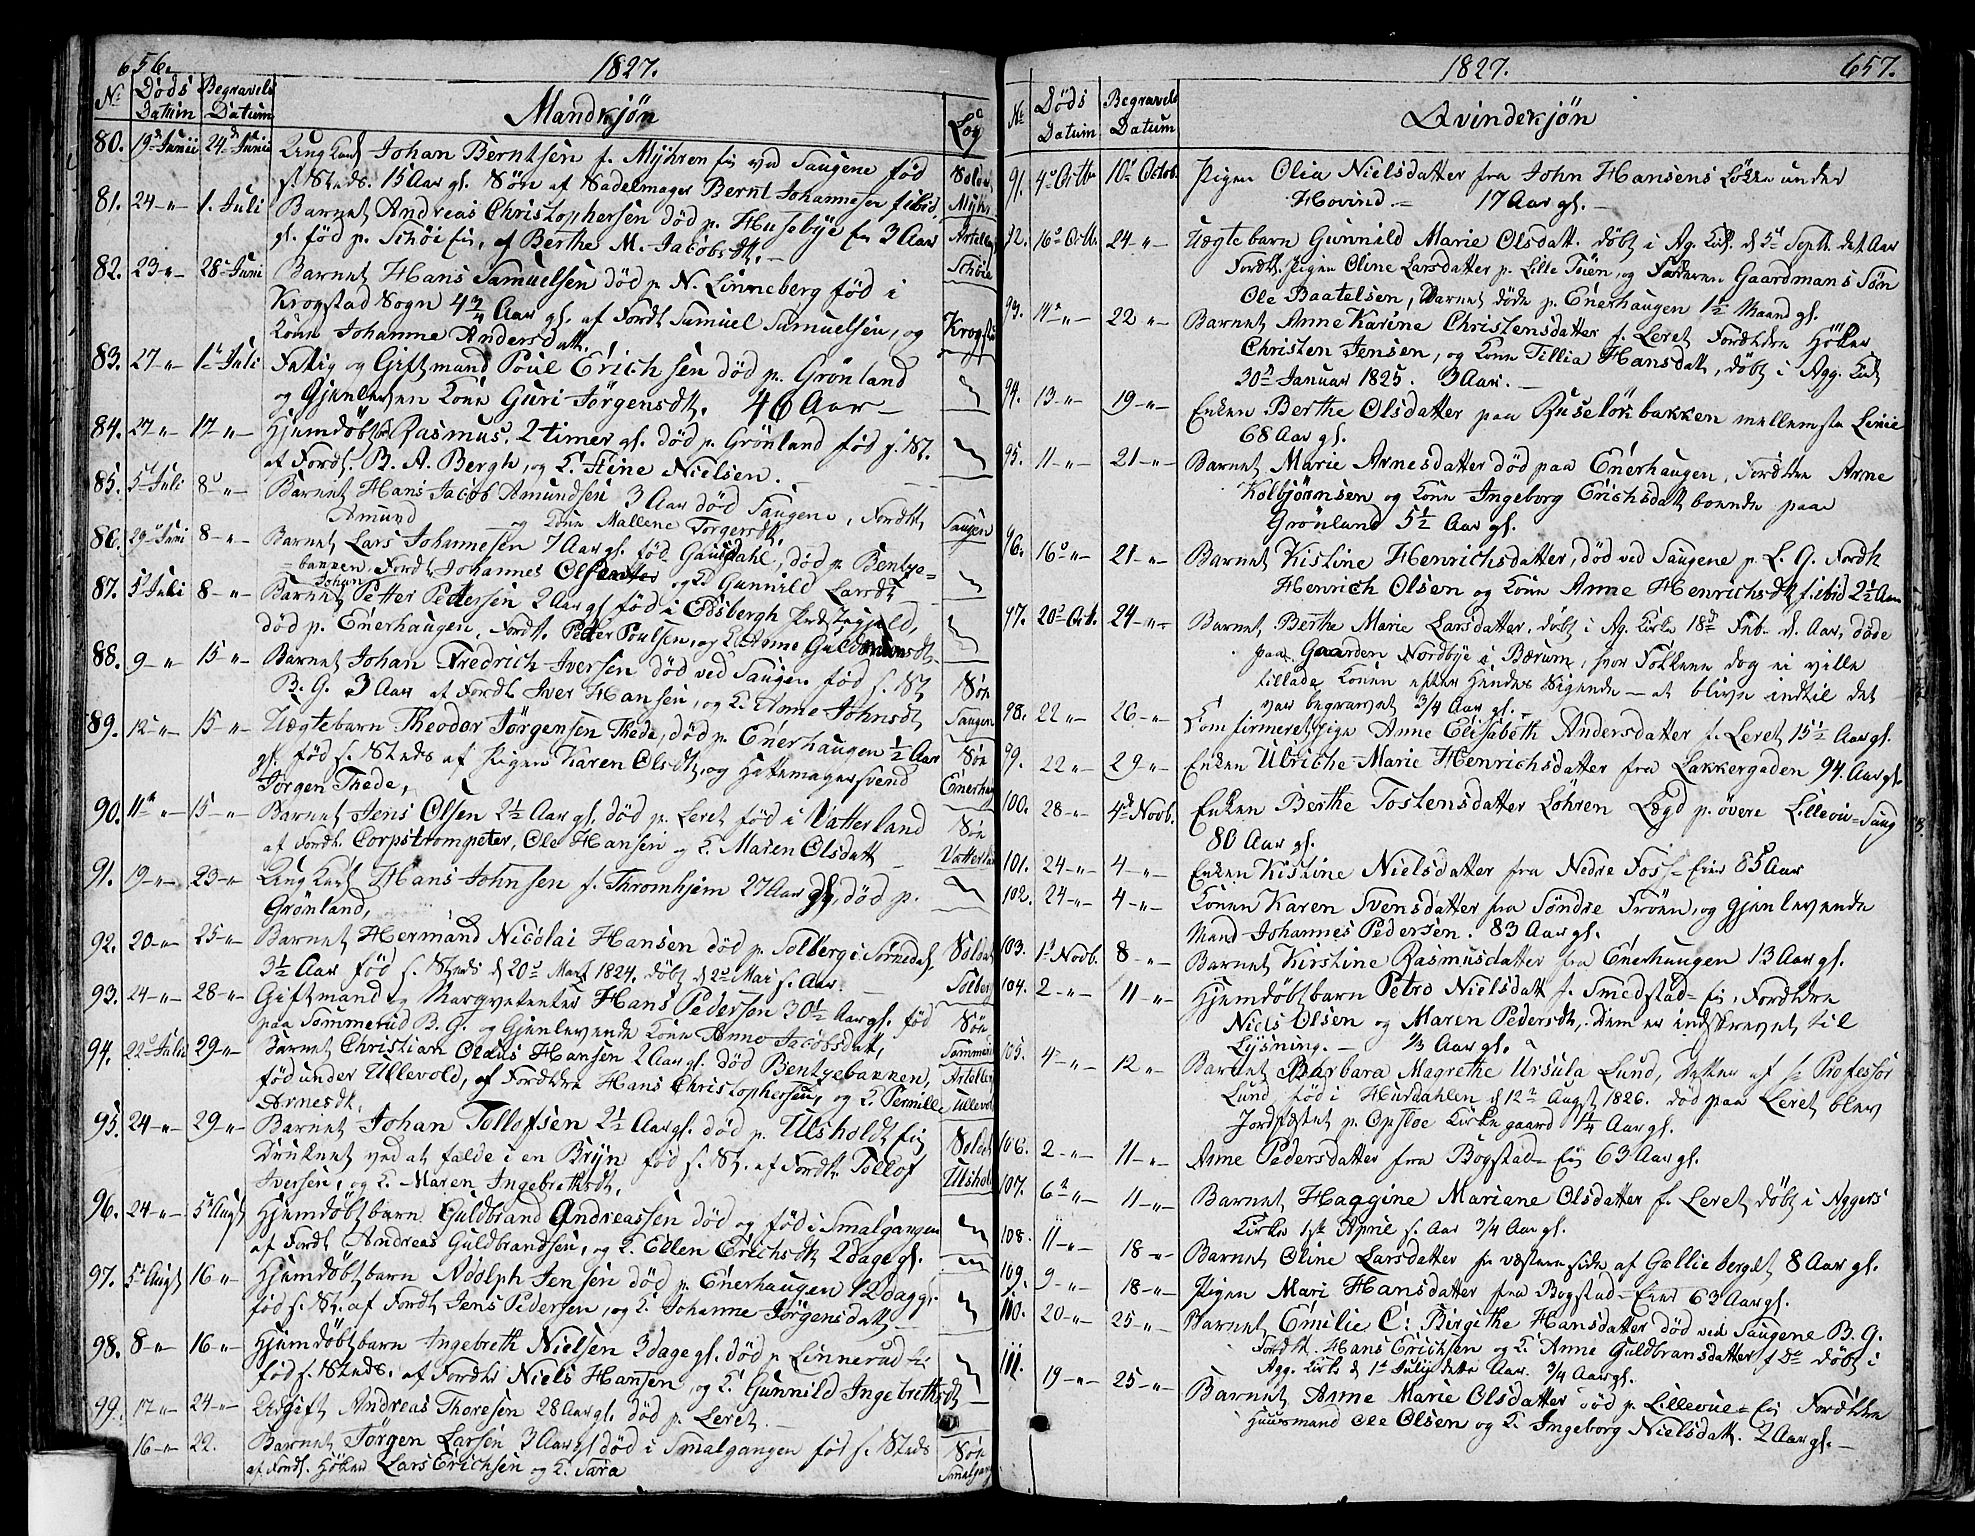 656.
1827.
No Døds Datum Begravels Datum
Mandkjøn
Log
80. 19de Junii 24de Junii Ung Karl Johan Berntsen f. Myhren Eie ved Saugene fød
s. Steds. 15 Aar gl. Søn af Sadelmager Bernt Johannesen fibid.
81. 24 -"- 1. Juli Barnet Andreas Christophersen død p. Husebye Eie 3 Aar
gl. fød p. Schöi Eie, af Berthe M. Jacobsdt.
82. 23 -"- 28 Juni Barnet Hans Samuelsen død p. N. Linneberg fød i
Krogstad Sogn 4 3/4 Aar gl. af Fordt Samuel Samuelsen, og
Kone Johanne Andersdatt.
83. 27 -"- 1te Juli Fattig og Giftmand Poul Erichsen død p. Grønland
og Gjenlevende Kone Guri Jørgensdt. 46 Aar
84. 27 -"- 17 -"- Hjemdøbt Rasmus. 2 timer gl. død p. Grønland fød s. St.
af Fordt. B. A. Bergh, og K. Stine Nielsen.
85. 5t Juli 8 -"- Barnet Hans Jacob Amundsen 3 Aar død Saugene, Fordt
Amund og Kone Mallene Torgersdt.
86. 29 Juni 8 -"- Barnet Lars Johannesen 7 Aar gl. fød. Gausdahl, død p. Bentze-
bakken, Fordt Johannes Olsen og K. Gunnild Larsdt
87. 5t Juli 8 -"- Barnet Johan Petter Pedersen 2 Aar gl. fød i Edsbergh Prestegjeld,
død p. Enerhaugen, Fordt. Peder Poulsen, og K. Anne Guldbrandsdt
88. 9 -"- 15 -"- Barnet Johan Fredrich Iversen død ved Saugene fød s. St
B. G. 3 Aar af Fordt. Iver Hansen, og K. Anne Johnsdt
89. 12 -"- 15 -"- Uægtebarn Theodor Jørgensen Thede, død p. Enerhaugen 1/2 Aar
gl. fød s. Steds af Pigen Karen Olsdt, og Hattemagersvend
Jørgen Thede,
90. 11te -"- 15 -"- Barnet Jens Olsen 2 1/2 Aar gl. død p. Leret fød i Vatterland
af Fordt. Corpstrompeter, Ole Hansen og K. Maren Olsdatt
91. 19 -"- 23 -"- Ung Karl Hans Johnsen f. Thromhjem 27 Aar gl, død p.
Grønland,
92. 20 -"- 25 -"- Barnet Hermand Nicolai Hansen død p. Solberg i Sørnedal,
3 1/2 Aar fød s. Steds d 20de Mart 1824. døbt d 2de Mai s. Aar.
93. 24 -"- 28 -"- Giftmand og Margvetenter Hans Pedersen 30 1/2 Aar gl. fød
paa Sommerud B. G. og Gjenlevende Kone Anne Jacobsdatt,
94. 22 Julii 29 -"- Barnet Christian Olaus Hansen 2 Aar gl. død Bentzebakken,
fød under Ullevold, af Fordldre Hans Christophersen, og K. Pernille
Arnesdt,
95. 24 -"- 29 -"- Barnet Johan Tollofsen 2 1/2 Aar gl. død p. Ulsholdt Eie
Druknet ved at falde i en Brøn fød s. St. af Fordt. Tollof
Iversen, og K. Maren Ingebrethsdt,
96. 24 -"- 5t Augst Hjemdøbt barn Guldbrand Andreassen død og fød i Smalgangen
af Fordt Andreas Guldbrandsen, og K. Ellen Erichsdt 2 dage gl.
97. 5t Augst 16 -"- Hjemdøbt barn Adolph Jensen død p. Enerhaugen 12 dag gl.
fød s. St. af Fordt Jens Pedersen, og K. Johanne Jørgensdatt
98. 8 -"- 16 -"- Hjemdøbt barn Ingebreth Nielsen 3 dage gl. død p. Linnerud Eie
fød s. Steds. af Fordt Niels Hansen, og K. Gunnild Ingebrethsdt
99. 17 -"- 24 -"- Ugift Andreas Thoresen 28 Aar gl. død p. Leret.
16 -"- 22. Barnet Jørgen Larsen 3 Aar gl død i Smalgangen fød s. Steds
af Fordt. Høker Lars Erichsen og K. Sara
Krogst
Saugen
Søn
Saugen
Søn
Enerha
Søn
Vatterla
Solberg
Søn
Ulshol
Søn
Smalgang
1827.
657.
No Døds Datum Begravels Datum
Qvindekjøn
91. 4de Octbr 10de Octob. Pigen Olia Nielsdatter fra John Hansens Løkke under
Hovind. 17 Aar gl.
92. 16de Octb. 24 -"- Uægte barn Gunnild Marie Olsdatt. døbt i Ag. Kirk. d 5te Septb. det Aar
Fordt. Pigen Oline Larsdatter p. Lille Tøien, og Faderen Gaardmands Søn
Ole Baatelsen, Barnet døde p. Enerhaugen 1 1/2 Maand gl.
93. 14 -"- 22 -"- Barnet Anne Karine Christensdatter f. Leret Fordldre Høker
Christen Jensen, og Kone Tillia Hansdatt, døbt i Agg. Kirk
30te Januar 1825. 3 Aar.
94. 13 -"- 19 -"- Enken Berthe Olsdatter paa Ruseløkbakken mellemste Linie
68 Aar gl.
95. 11 -"- 21 -"- Barnet Marie Arnesdatter død paa Enerhaugen, Fordldre Arne
Kolbjørnsen og Kone Ingeborg Erichsdatt boende paa
Grønland 5 1/2 Aar gl.
96. 16 -"- 21 -"- Barnet Kistine Henrichsdatter, død ved Saugene p. L. G. Fordt
Henrich Olsen og Kone Anne Henrichsdt, fibid 2 1/2 Aar
97. 20 Oct. 24 -"- Barnet Berthe Marie Larsdatter, døbt i Ag. Kirke 18de Feb. d. Aar, døde
paa Gaarden Nordbye i Bærum, hvor Folkene dog ei ville
tillade Konen efter hendes Sigende - at blive indtil det
var begravet 3/4 Aar gl.
98. 22 -"- 26 -"- Confirmeret Pige Anne Elisabeth Andersdatter f. Leret 15 1/2 Aar gl.
99. 22 -"- 29 -"- Enken Ulriche Marie Henrichsdatter fra Lakkergaden 94. Aar gl.
100. 28 -"- 4de Novb. Enken Berthe Tostensdatter Løhren Lægd p. øvere Lilleou-Saug
80 Aar gl.
101. 24 -"- 4 -"- Enken Kistine Nielsdatter fra Nedre Foss-Eier 85 Aar
102. 24 -"- 4 -"- Konen Karen Svensdatter fra Søndre Frøen, og gjenlevende
Mand Johannes Pedersen. 83 Aar gl.
103. 1te Novb. 8 -"- Barnet Kirstine Rasmusdatter fra Enerhaugen 13 Aar gl.
104. 2 -"- 11 -"- Hjemdøbt barn Petro Nielsdatt f. Smedstad-Eie, Fordldre
Niels Olsen og Maren Pedersdt, Dem er indskrevet til
Lysning. 1/3 Aar gl.
105. 4 -"- 12 -"- Barnet Barbara Magrethe Ursula Lund, Datter af Hr Professor
Lund, fød i Hurdahlen d 12te Augst 1826. død paa Leret blev
Jordfæstet p. Opsloe Kirkegaard 1 1/4 Aar gl.
106. 2 -"- 11 -"- Anne Pedersdatter fra Bogstad-Eie 63 Aar gl.
107. 6te -"- 11 -"- Barnet Haggine Mariane Olsdatter f. Leret døbt i Aggers
Kirke 1st April s. Aar 3/4 Aar gl.
108. 11 -"- 18 -"- Barnet Oline Larsdatter fra vestere side af Gallieberget 8 Aar gl.
109. 9 -"- 18 -"- Pigen Mari Hansdatter fra Bogstad-Eier 63 Aar gl.
110. 20 -"- 25 -"- Barnet Emilie C: Birgithe Hansdatter død ved Saugene B. G.
Fordt. Hans Erichsen og K. Anne Guldbransdatter f Do døbt i
Agg. Kirke d 1te July dette Aar. 3/4 Aar gl.
111. 19 -"- 25 -"- Barnet Anne Marie Olsdatter død p. Lilleoue-Eie Fordldre
Huusmand Ole Olsen og K. Ingeborg Nielsdatt. 2 Aar gl.